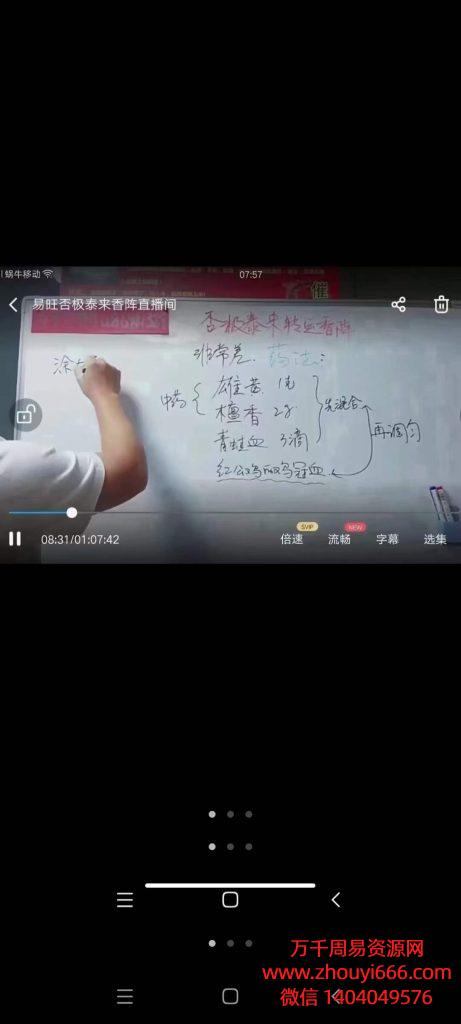 蜗牛移动
07:57
易旺否极泰来香阵直播间
催
否极泰来转运香阵
非常差. 药法:
涂
中药
雄黄 1克
檀香 2g
青蛙血 3滴
先混合
再调匀
红公鸡鸡冠血
SVIP
NEW
08:31/01:07:42
倍速
流畅
字幕
选集
万千周易资源网
www.zhouyi666.com
微信 1404049576